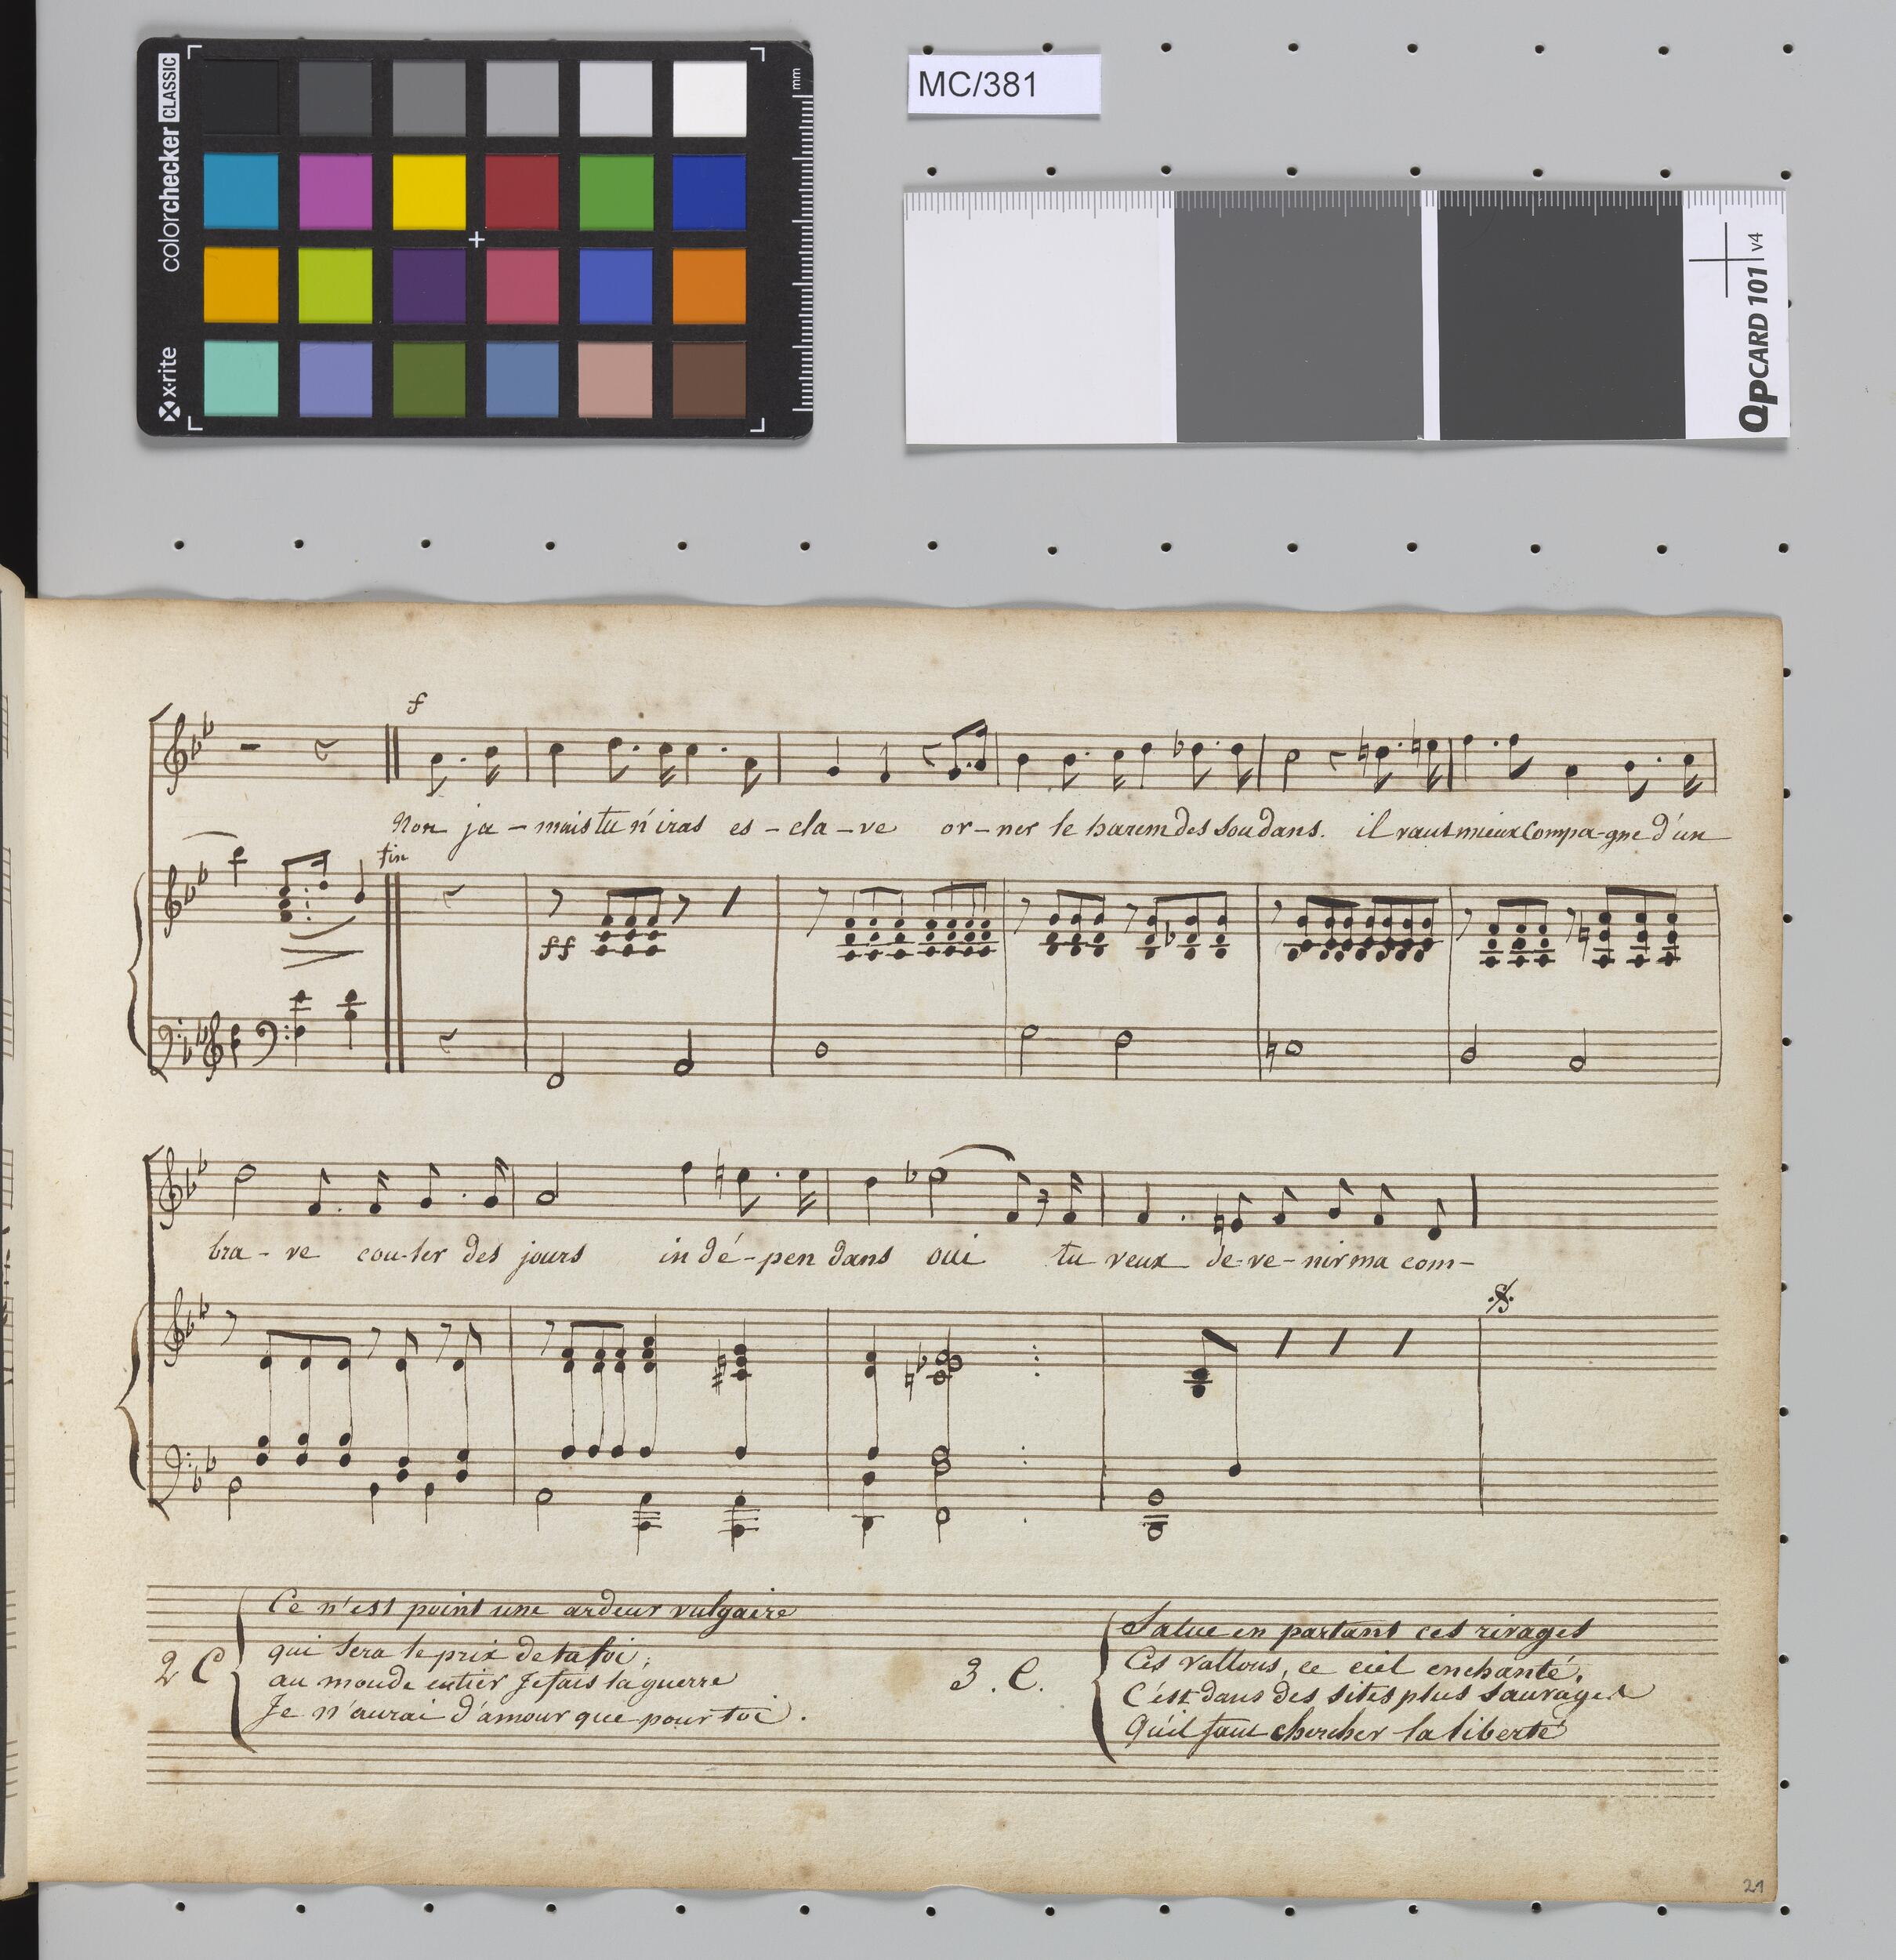 colorchecker CLASSIC
x·rite
mm
MC/381
QPCARD 101 v4
f
Non ja - mais tu n'iras es - cla - ve or - ner le harem des soudans. il vaut mieux compa - gne d'un
fin
ff
bra - ve cou - ler des jours in dé - pen dans oui tu veux de - ve - nir ma com -
2 C
Ce n'est point une ardeur vulgaire
qui sera le prix de ta foi;
au monde entier Je fais la guerre
Je n'aurai d'amour que pour toi.
3. C.
Salue en partant ces rivages
Ces vallons, ce ciel enchanté,
C'est dans des sites plus sauvages
Qu'il faut chercher la liberté
21